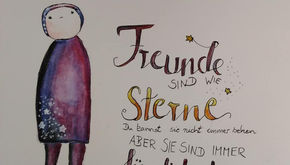 Freunde
SIND WIE
Sterne
Du kannst sie nicht immer sehen
ABER SIE SIND IMMER